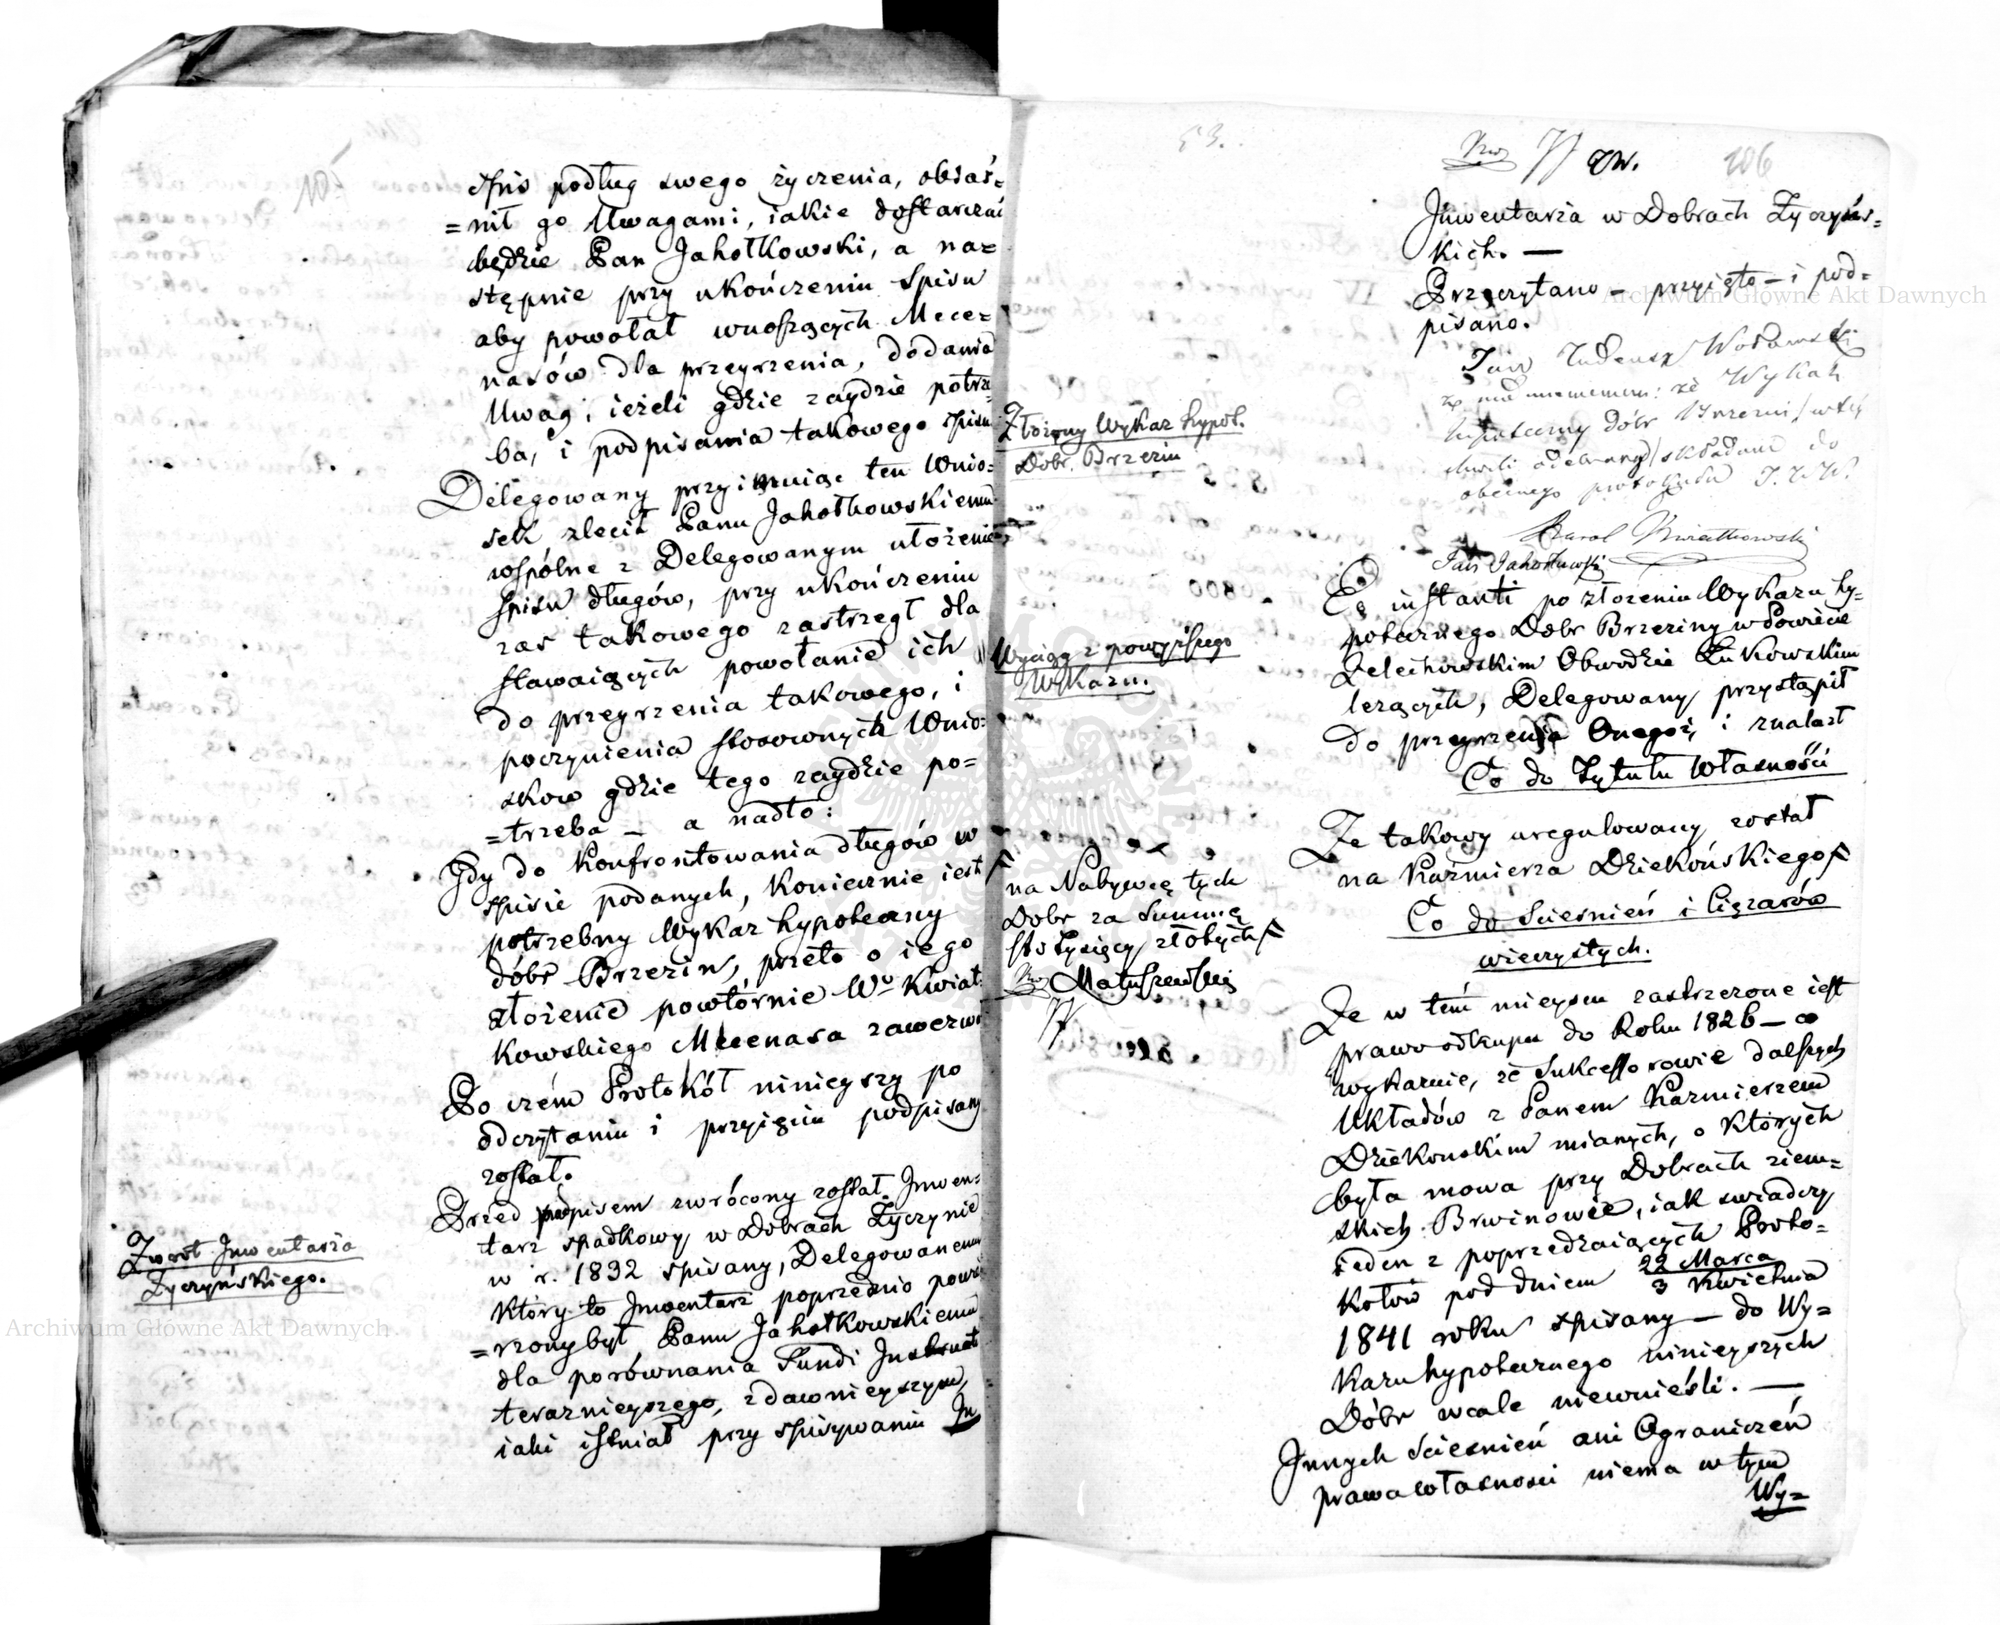 spis podług swego życzenia, obiaś-
=nił go Uwagami, iakie dostarczać
będzie Pan Jahołkowski, a na=
stępnie przy ukończeniu Spisu
aby powołał wnoszących Mece=
nasów dla przeyrzenia, dodania
Uwag, ieżeli gdzie zaydzie potrze
ba, i podpisania takowego spisu
Delegowany przyimuiąc ten Wnio=
sek zlecił Panu Jahołkowskiemu
wspólne z Delegowanym ułożenie
Spisu długów, przy ukończeniu
zas takowego zastrzegł dla
stawaiących powołanie ich
do przeyrzenia takowego, i
poczynienia stosownych Wnio=
skow gdzie tego zaydzie po=
=trzeba – a nadto:
Gdy do Konfrontowania długów w
spisie podanych, Koniecznie iest
potrzebny Wykaz hypoteczny
dóbr Brzezin, przeto o iego
złożenie powtórnie Wo Kwiat
kowskiego Mecenasa zawezwa
Po czém Protokół ninieyszy po
odczytaniu i przyięciu podpisany
został.
Przed podpisem zwrócony został Inwen=
tarz spadkowy w Dobrach Życzynie
w r. 1832 spisany, Delegowanemu
który to Inwentarz poprzednio powie
=rzony był Panu Jahołkowskiemu
dla porównania Fundi Instructi
teraznieyszego, z dawnieyszym,
iaki istniał przy spisywaniu In
Zwrot Inwentarza
Życzyńskiego.
53.
106
Inwentarza w Dobrach Życzyńs=
kich. —
Przeczytano – przyięto – i pod=
pisano.
Jan Tadeusz Wodawski
Wykaz
hipoteczny dóbr Brzezin w tey
chwili odebrany składam do
obecnego protokułu
Karol Kwiatkowski
Jan Jahołkowski
Złożony Wykaz hypot.
Dobr. Brzezin
Ex instanti po złożeniu Wykazu hy=
potecznego Dobr Brzeziny w Powiecie
Żelechowskim Obwodzie Łukowskim
leżących, Delegowany przystąpił
do przeyrzenia Onegoż, i znalazł
Wyciąg z powyższego
Wykazu.
Co do Tytułu Własności
Że takowy uregulowany został
na Kaźmierza Dziekońskiego
na Nabywcę tych
Dobr za Summę
sto tysięcy złotych
Matuszewski
Co do Ścieśnień i Ciężarów
wieczystych.
Że w tém mieyscu zastrzeżone iest
prawo odkupu do Roku 1826 – a
wykaznie, że Sukcessorowie dalszych
Układów z Panem Kazmierzem
Dziekonskim mianych, o których
była mowa przy Dobrach ziem=
skich Brwinowie, iak swiadczy
ieden z poprzedzaiących Proto=
kołow pod dniem 22 Marca
3 Kwietnia
1841 roku spisany – do Wy=
kazu hypotecznego ninieyszych
Dóbr wcale niewnieśli. —
Innych Ścieśnień ani Ograniczeń
prawa własności niema w tym
Wy=
Archiwum Główne Akt Dawnych
Archiwum Główne Akt Dawnych